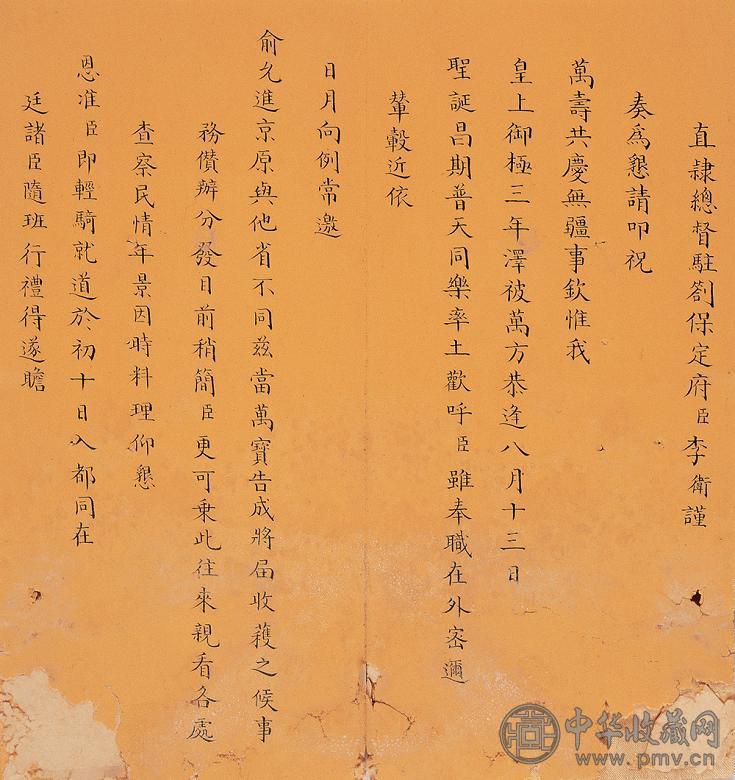 直隸總督駐劄保定府臣李衛謹
奏為懇請叩祝
萬壽共慶無疆事欽惟我
皇上御極三年澤被萬方恭逢八月十三日
聖誕昌期普天同樂率土歡呼臣雖奉職在外密邇
輦轂近依
日月向例常邀
俞允進京原與他省不同茲當萬寶告成將屆收穫之候事
務儹辦分發日前稍簡臣更可乘此往來親看各處
查察民情年景因時料理仰懇
恩准臣即輕騎就道於初十日入都同在
廷諸臣隨班行禮得遂瞻
中华收藏网
www.pmv.cn